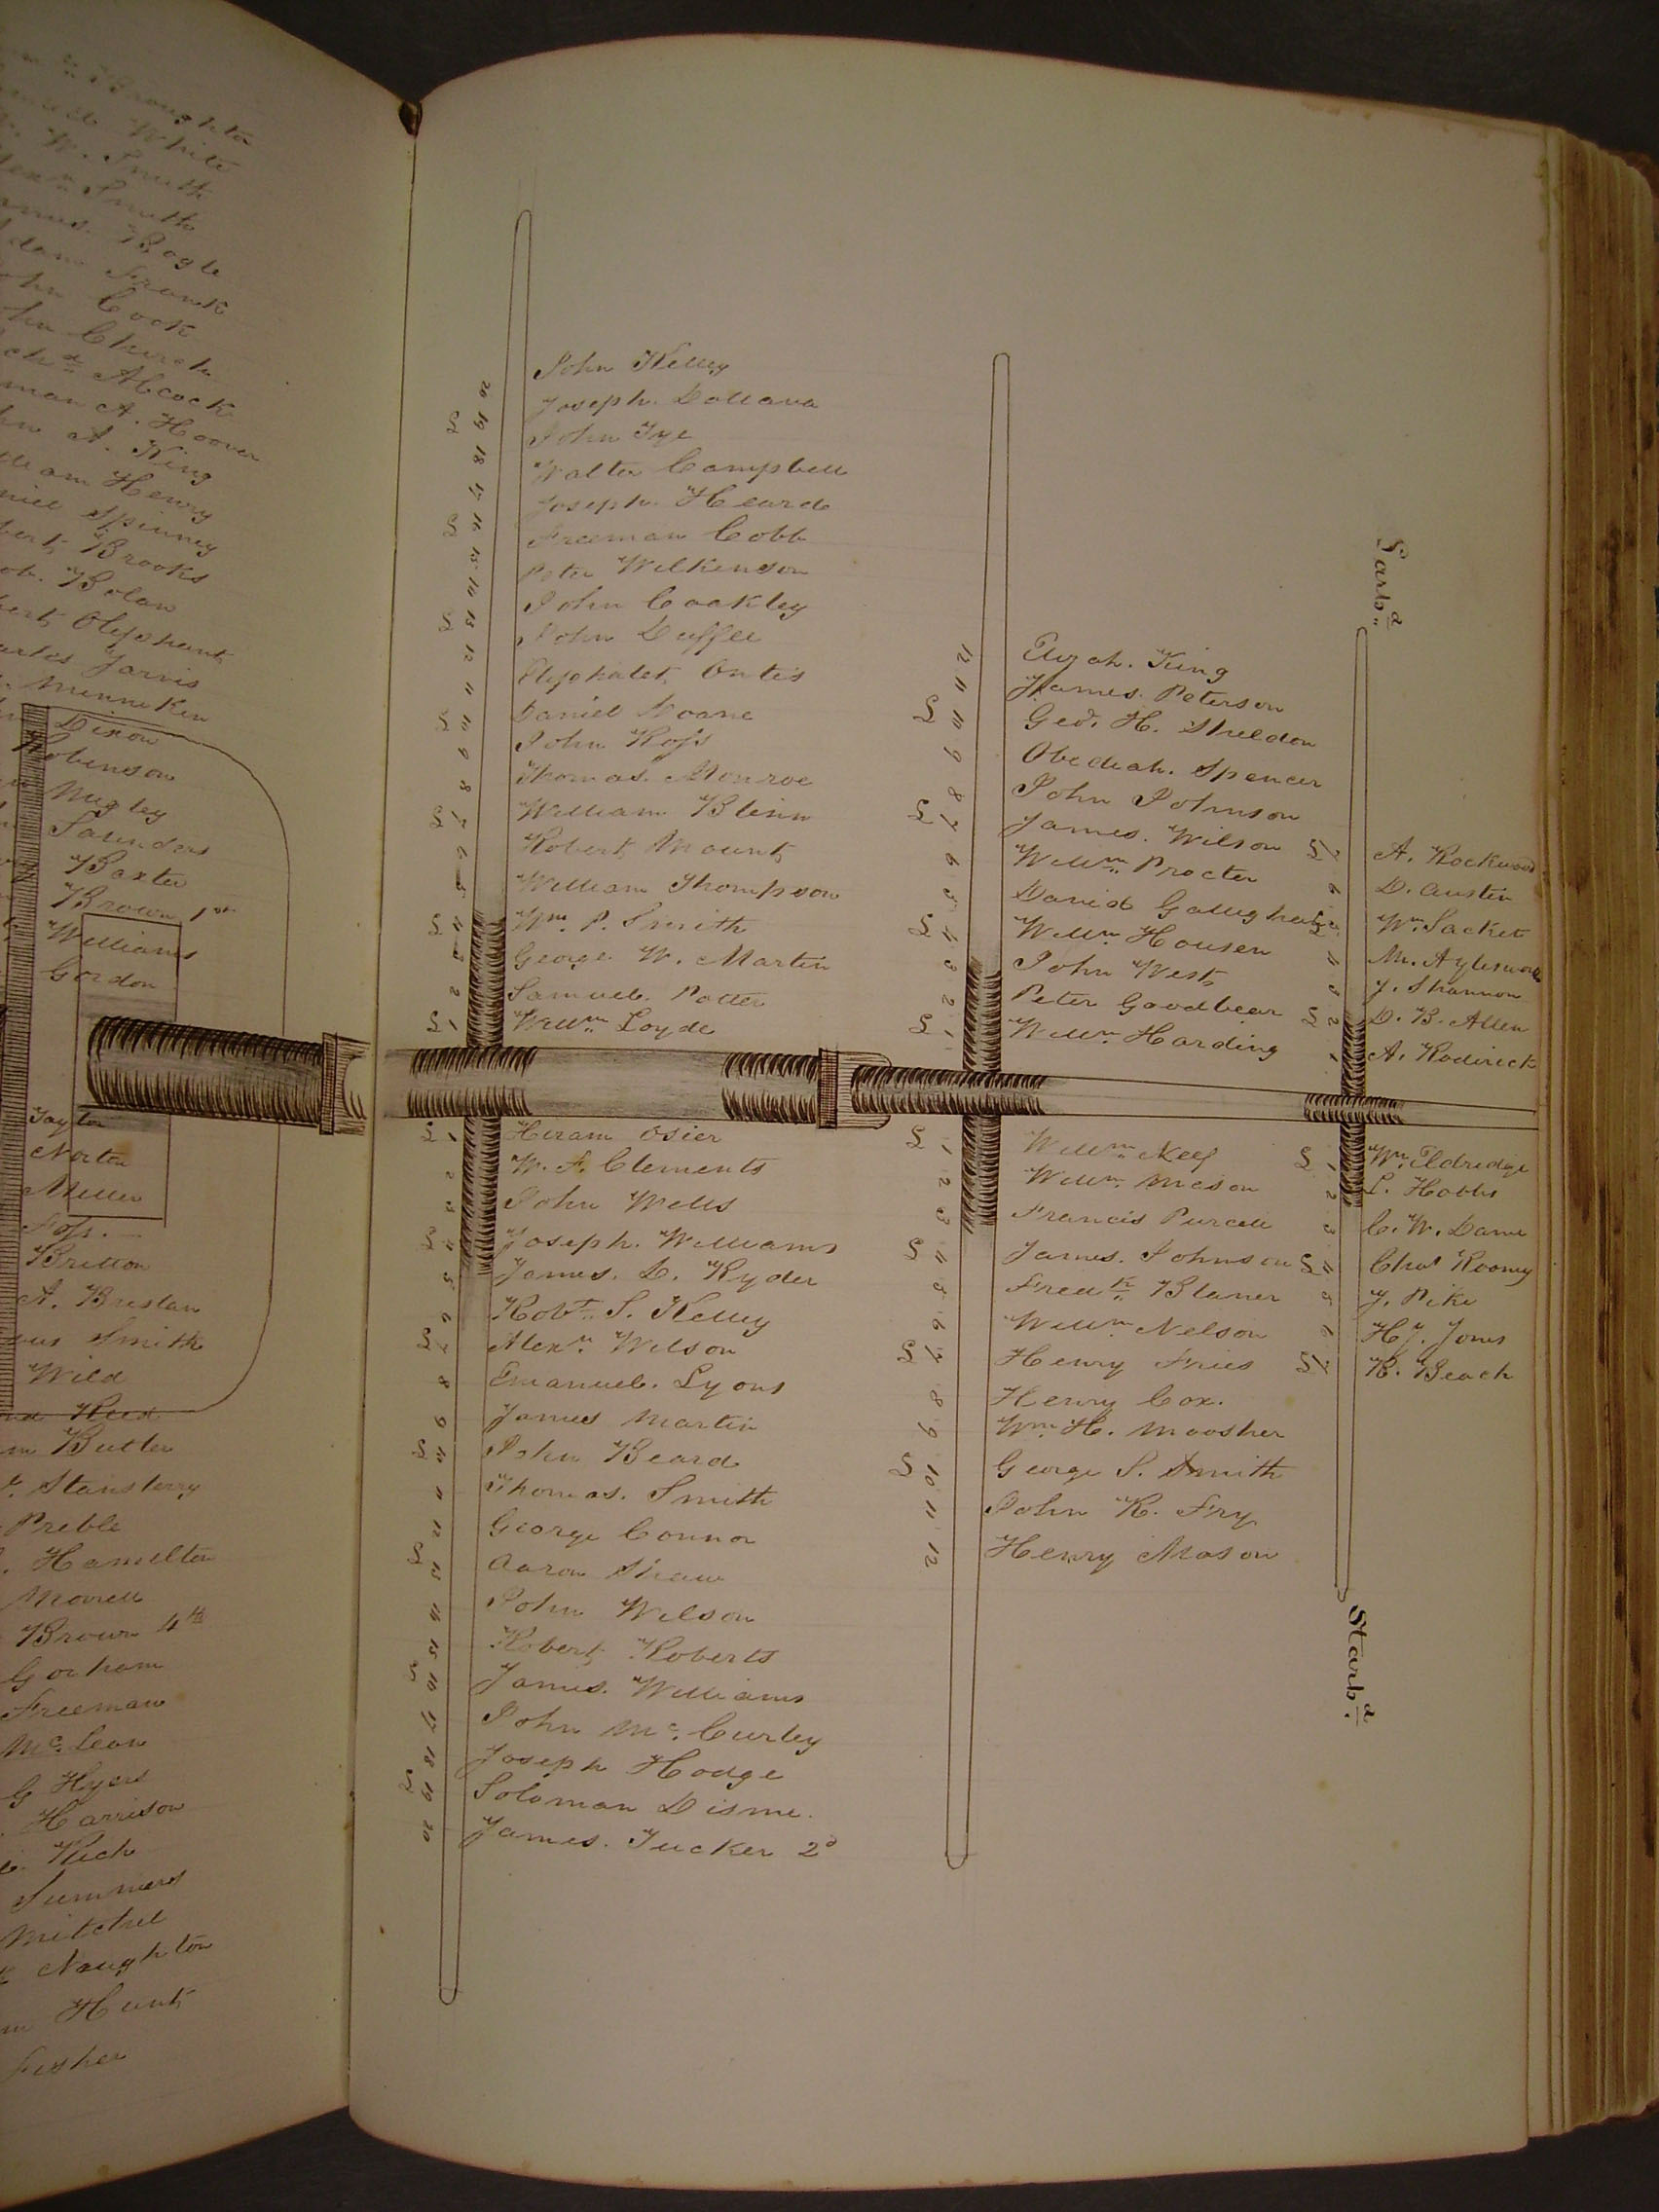 Broughton
White
W. Smith
Smith
Bogle
Frank
Cock
Church
Alcock
A. Hoover
A. King
Henry
Spinney
Brooks
Bolan
Olyphant
Jarvis
Minneken
Dixon
Robinson
Mugley
Saunders
Baxter
Brown 1st
Williams
Gordon
Taylor
Norton
Miller
Foss.
Britton
A. Breslan
Smith
Wild
Reed
Butler
Stansberry
Preble
Hamilton
Morrell
Brown 4th
Gorham
Freeman
Mc. Lean
G Hyers
Harrison
Rich
Summers
Mitchel
Naughton
Hunt
Fisher
John Kelley
20
Joseph. Dallava
19
John Tye
18
Walter Campbell
17
Joseph. Heard
16
Freeman Cobb
15
Peter Wilkenson
14
John Coakley
13
John Duffee
12
Elyphalet Ontis
11
Daniel Noane
10
John Ross
9
Thomas. Monroe
8
William Blinn
7
Robert Mount
6
William Thompson
5
Wm. P. Smith
4
George W. Martin
3
Samuel. Potter
2
Willm. Loyde
1
1
Hiram Osier
2
W. A. Clements
3
John Wells
4
Joseph. Williams
5
James. L. Ryder
6
Robt. S. Kelley
7
Alexr. Wilson
8
Emanuel. Lyons
9
James Martin
10
John Beard
11
Thomas. Smith
12
George Connor
13
Aaron Shaw
14
John Wilson
15
Robert Roberts
16
James. Williams
17
John Mc. Curley
18
Joseph Hodge
19
Soloman Disme.
20
James. Tucker 2d
12
Elijah. King
11
James. Peterson
10
Geo. H. Sheldon
9
Obediah. Spencer
8
John Johnson
7
James. Wilson
6
Willm. Procter
5
David Gallugher
4
Willm. Housen
3
John West
2
Peter Goodbear
1
Willm. Harding
1
Willm. Neef
2
Willm. Meson
3
Francis Purcell
4
James. Johnson
5
Fredk. Blaner
6
Willm. Nelson
7
Henry Fries
8
Henry Cox.
9
Wm. H. Moosher
10
George S. Smith
11
John R. Fry
12
Henry Mason
Larbd.
7
A. Rockwood
6
D. Austin
5
Wm. Sacket
4
M. Aylsworth
3
J. Shannon
2
D. B. Allen
1
A. Rodirick
1
Wm. Eldredge
2
L. Hobbs
3
C. W. Dame
4
Chas Roomy
5
J. Pike
6
H J. Jones
7
R. Beach
Starbd.